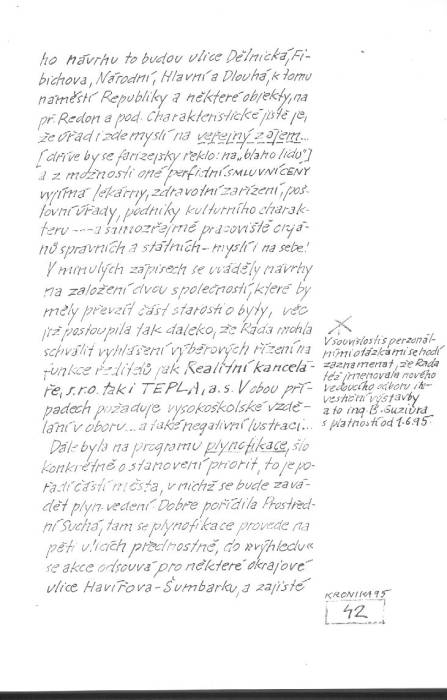 ho návrhu to budou ulice Dělnická, Fi-
bichova, Národní, Hlavní a Dlouhá, k tomu
náměstí Republiky a některé objekty, na
př. Redon a pod. Charakteristické jistě je,
že úřad i zde myslí na veřejný zájem...
[dříve by se farizejsky řeklo: na „blaho lidu"]
a z možnosti oné perfidní SMLUVNÍ CENY
vyjímá lékárny, zdravotní zařízení, poš-
tovní úřady, podniky kulturního charak-
teru --- a samozřejmě pracoviště orgá-
nů správních a státních - myslí i na sebe!
V minulých zápisech se uváděly návrhy
na založení dvou společností, které by
měly převzít část starostí o byty, věc
již postoupila tak daleko, že Rada mohla
schválit vyhlášení výběrových řízení na
funkce ředitelů jak Realitní kancelá-
ře, s.r.o. tak i TEPLA, a.s. V obou pří-
padech požaduje vysokoškolské vzdě-
lání v oboru... a také negativní lustraci...
Dále byla na programu plynofikace, šlo
konkrétně o stanovení priorit, to je po-
řadí částí města, v nichž se bude zavá-
dět plyn. vedení. Dobře pořídila Prostřed-
ní Suchá, tam se plynofikace provede na
pěti ulicích přednostně, do »výhledu«
se akce odsouvá pro některé okrajové
ulice Havířova-Šumbarku, a zajisté
V souvislosti s personál-
ními otázkami se hodí
zaznamenat, že Rada
též jmenovala nového
vedoucího odboru in-
vestiční výstavby
a to ing. B. Suziura
s platností od 1.6.95.
KRONIKA 95
42